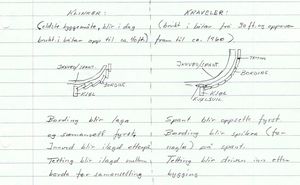 KLINKER:
(eldste byggemåte, blir i dag
brukt i båtar opp til ca. 40ft)
INNVED/SPANT
BORDING
KJØL
Bording blir laga
og samansett fyrst.
Innved blir ilagd etterpå
Tetting blir ilagd mellom
borda før samansetting
KRAVELER:
(brukt i båtar frå 30ft. og oppover
fram til ca. 1960)
INNVED/SPANT
TETTING
BORDING
KJØL
KJØLSVIN
Spant blir oppsett fyrst.
Bording blir spikra (før
nagla) på spant.
Tetting blir driven inn etter
bygging